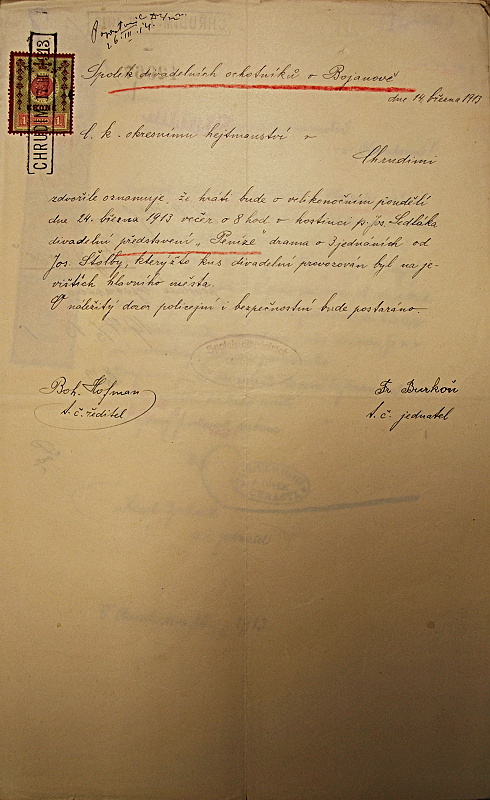 26.III.14.
CHRUDIM 1913
1
Spolek divadelních ochotníků v Bojanově
dne 14. března 1913
C. k. okresnímu hejtmanství v
Chrudimi
zdvořile oznamuje, že hráti bude o velikonočním pondělí
dne 24. března 1913 večer o 8 hod. v hostinci p. Jos. Sedláka
divadelní představení „Peníze" drama o 3 jednáních od
Jos. Štolby, kterýžto kus divadelní provozován byl na je-
vištích hlavního města.
O náležitý dozor policejní i bezpečnostní bude postaráno.
Boh. Hofman
t. č. ředitel
Fr. Burkoň
t. č. jednatel